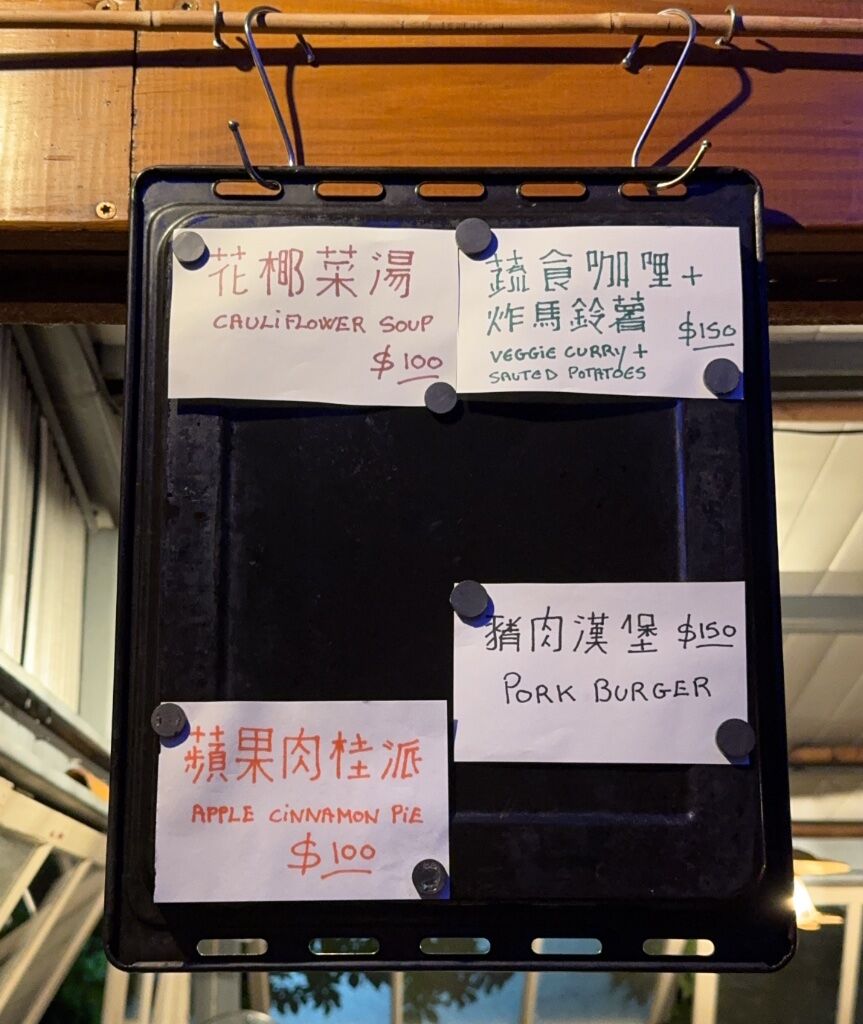 花椰菜湯
CAULIFLOWER SOUP
$100
蔬食咖哩+
炸馬鈴薯
$150
VEGGIE CURRY +
SAUTED POTATOES
豬肉漢堡 $150
PORK BURGER
蘋果肉桂派
APPLE CINNAMON PIE
$100